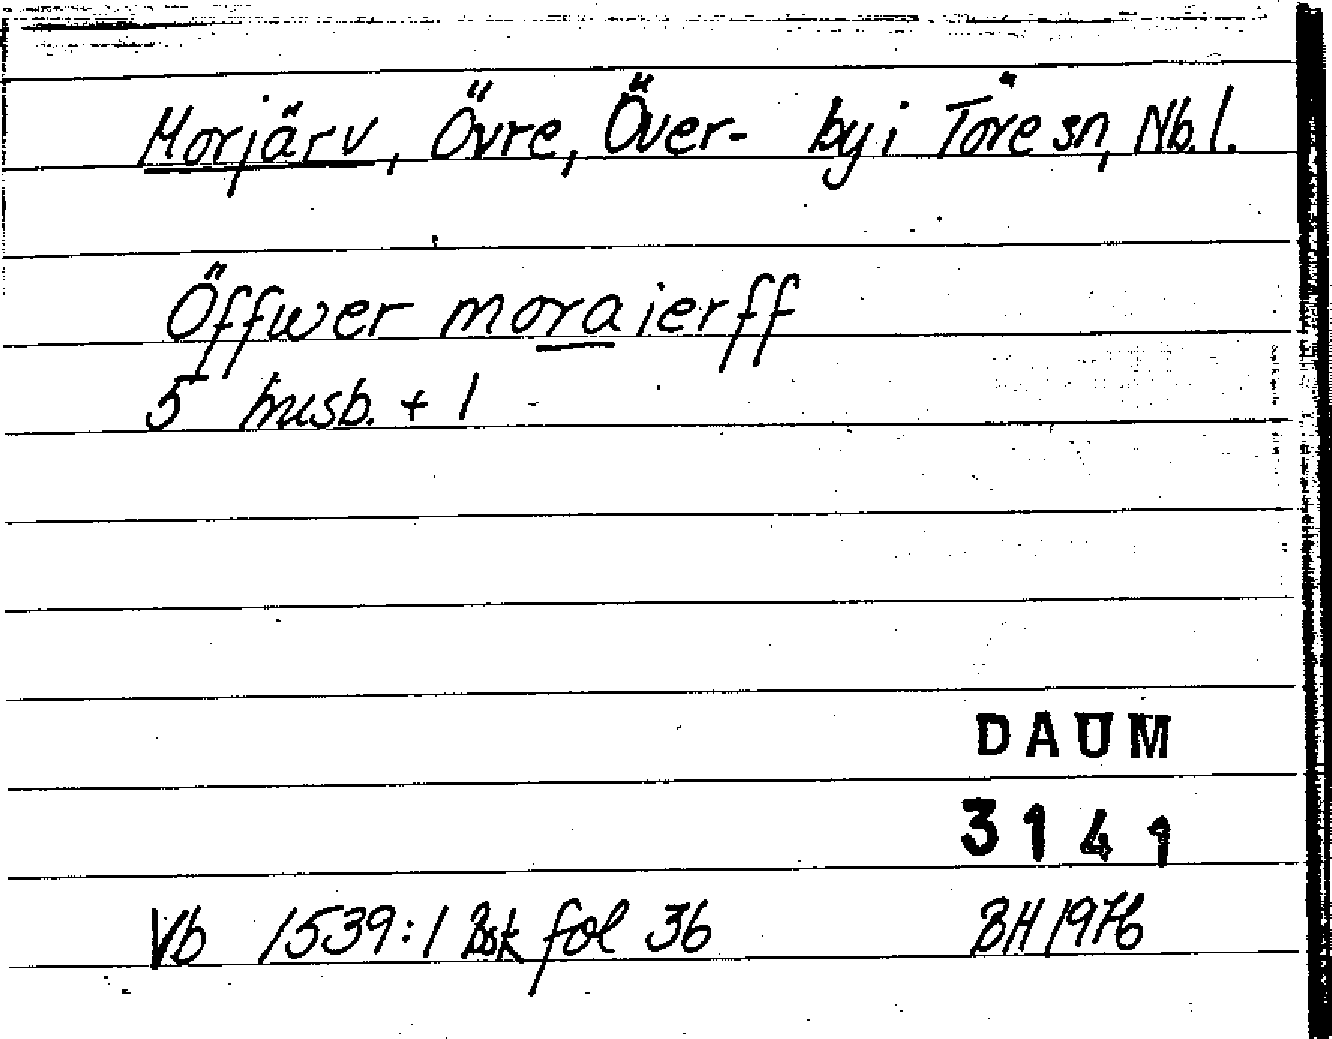 Morjärv, Övre, Över- by i Töre sn, Nb. l.
Öffwer morajerff
5 husb. + 1
DAUM
3141
Vb 1539:1 Bsk fol 36 BH 1976